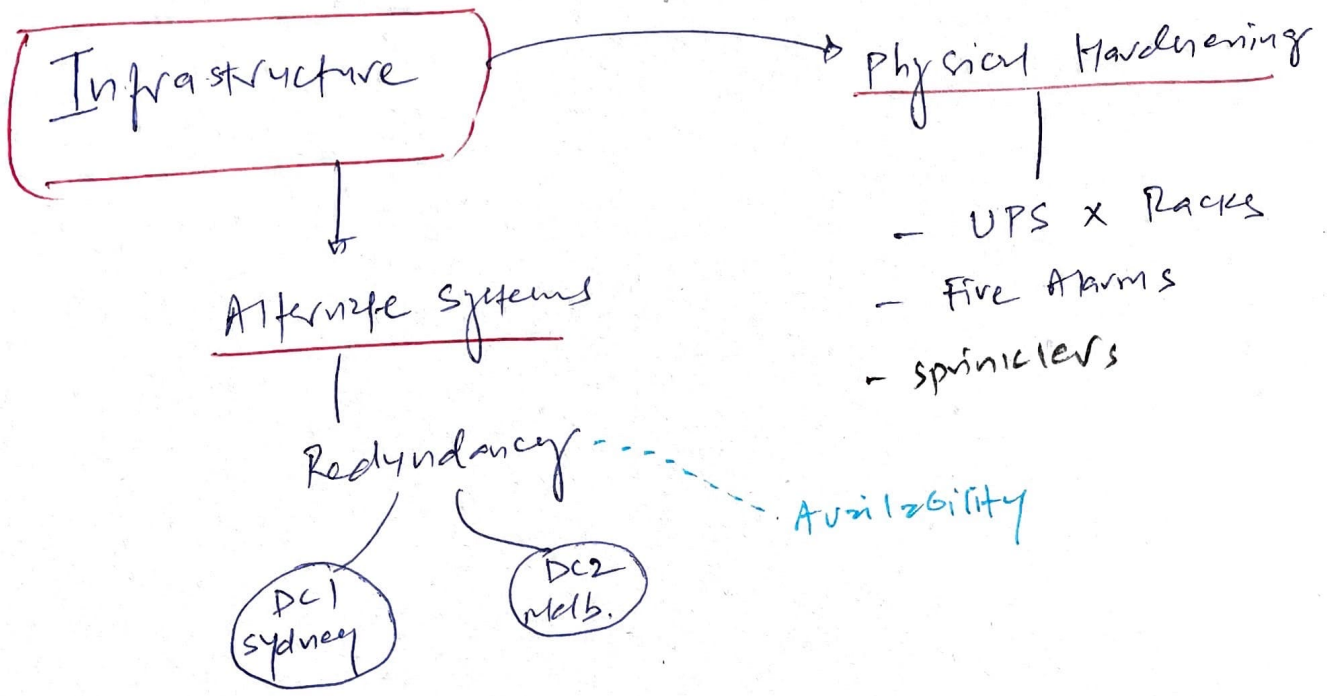 Infrastructure
Physical Hardenening
- UPS x Racks
- Fire Alarms
- Sprinklers
Alternate Systems
Redundancy
Availability
DC1
Sydney
DC2
Melb.